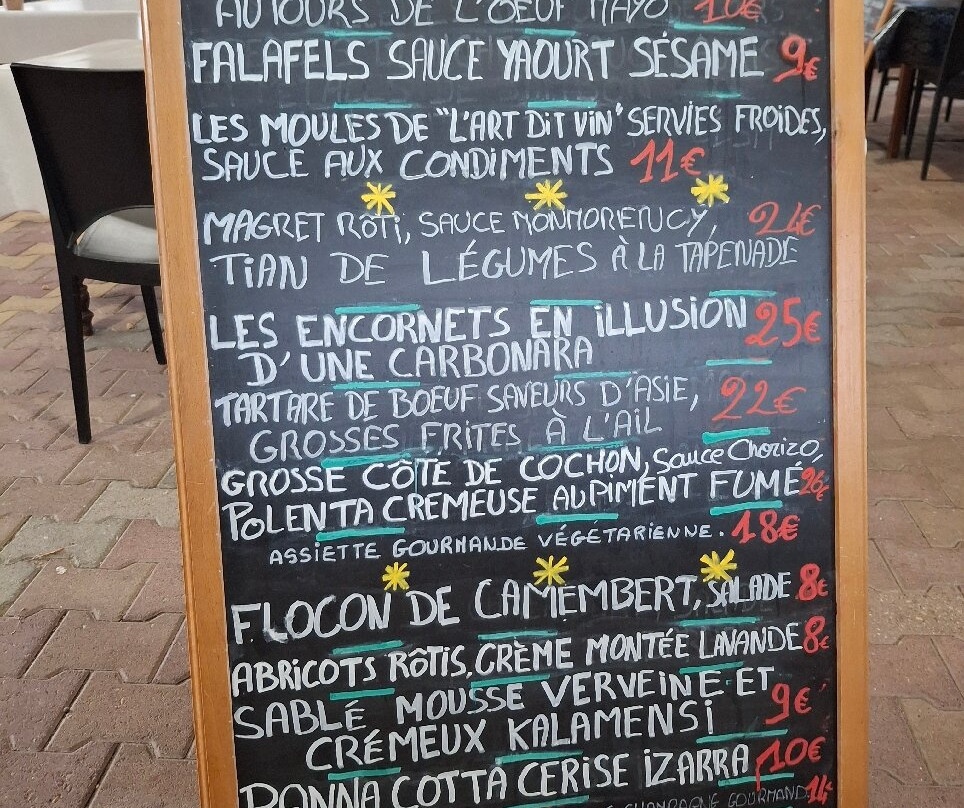 AUTOURS DE L'OEUF MAYO 10€
FALAFELS SAUCE YAOURT SÉSAME 9€
LES MOULES DE "L'ART DIT VIN" SERVIES FROIDES,
SAUCE AUX CONDIMENTS 11€
MAGRET RÔTI, SAUCE MONMORENCY, 24€
TIAN DE LÉGUMES À LA TAPENADE
LES ENCORNETS EN ILLUSION 25€
D'UNE CARBONARA
TARTARE DE BOEUF SAVEURS D'ASIE, 22€
GROSSES FRITES À L'AIL
GROSSE CÔTE DE COCHON, Sauce Chorizo,
POLENTA CREMEUSE AU PIMENT FUMÉ 26€
ASSIETTE GOURMANDE VÉGÉTARIENNE. 18€
FLOCON DE CAMEMBERT, SALADE 8€
ABRICOTS RÔTIS, CRÈME MONTÉE LAVANDE 8€
SABLÉ MOUSSE VERVEINE ET 9€
CRÉMEUX KALAMENSI
PANNA COTTA CERISE IZARRA 10€
CHAMPAGNE GOURMAND 14€